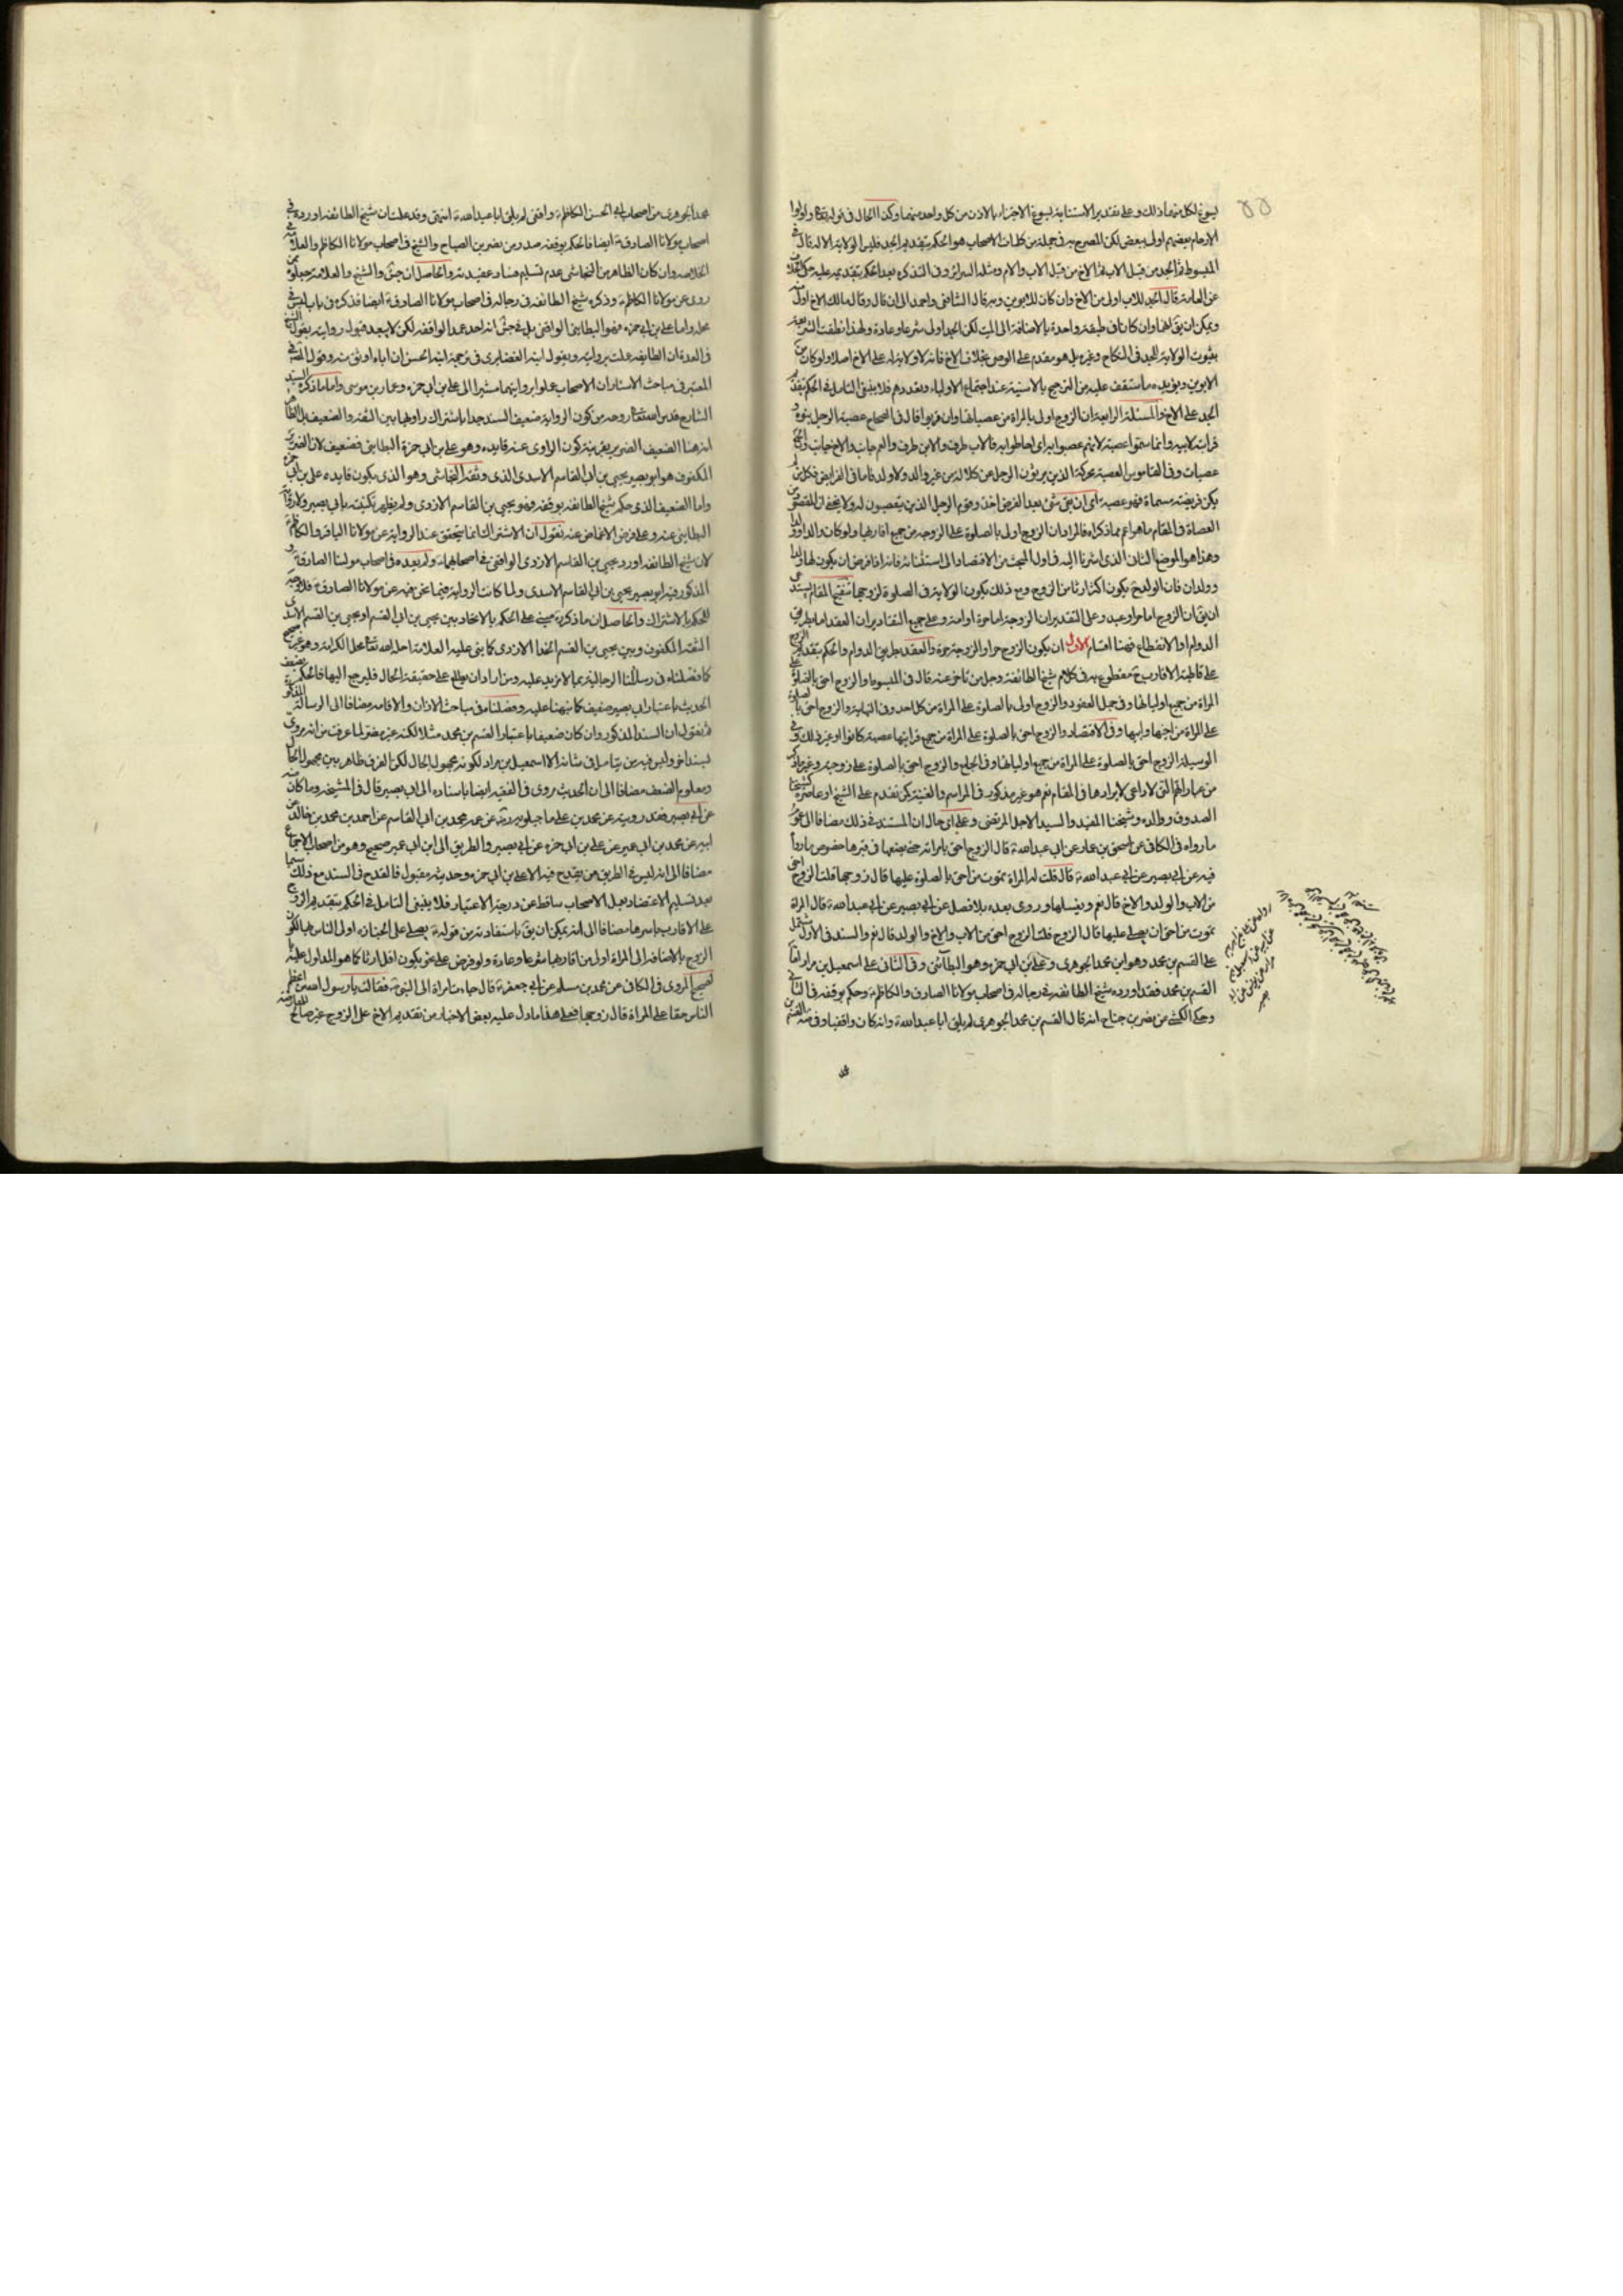 يسوغ لكل منهما ذلك وعلى تقدير الاستنابة يسوغ الاجتزاء بالاذن من كل واحد منهما وكذا الحال في قوله تعالى واولوا
الارحام بعضهم اولى ببعض لكن المصرح به في جملة من كلمات الاصحاب هو الحكم بتقديم الجد فليس الولاية الا له قال في
المبسوط ثم الجد من قبل الاب ثم الاخ من قبل الاب والام ومثله السرائر وفي التذكرة بعد الحكم بتقديمه عليه حكى
عن العامة قال الجد للاب اولى من الاخ وان كان للابوين وبه قال الشافعي واحمد الى ان قال وقال مالك الاخ اولى
ويمكن ان يق انهما وان كانا في طبقة واحدة بالاضافة الى الميت لكن الجد اولى شرعا وعادة ولهذا نطقت الشريعة
بثبوت الولاية للجد في النكاح وغيره بل هو مقدم على الوصي بخلاف الاخ فانه لا ولاية له على الاخ اصلا ولو كان من
الابوين ويؤيده ما ستقف عليه من الترجيح بالاسنية عند اجتماع الاولياء وتعددهم فلا ينبغي التامل في الحكم بتقديم
الجد على الاخ والمسئلة الرابعة ان الزوج اولى بالمراة من عصباتها وان قربوا قال في الصحاح عصبة الرجل بنوه و
قرابته لابيه وانما سموا عصبة لانهم عصبوا به اي احاطوا به فالاب طرف والابن طرف والعم جانب والاخ جانب والجمع
عصبات وفي القاموس العصبة محركة الذين يرثون الرجل عن كلالة من غير والد ولا ولد فاما في الفرايض فكل من لم
يكن فريضته مسماة فهو عصبة ان بقي شئ بعد الفرض اخذ وقوم الرجل الذين يتعصبون له ولا يخفى ان المقصود من
العصبات في المقام ما هو اعم مما ذكراه فالمراد ان الزوج اولى بالصلوة على الزوجة من جميع اقاربها ولو كان والدا او ولدا
وهذا هو الموضع الثاني الذي اشرنا اليه في اول المبحث من الاقتصاد الى استثنائه فانه اذا فرض ان يكون لها
وولدان فان الولد ح يكون اكثر ارثا من الزوج ومع ذلك يكون الولاية في الصلوة لزوجها تنقيح المقام يستدعي
ان يق ان الزوج اما حر او عبد وعلى التقديرين الزوجة اما حرة او امة وعلى جميع التقادير ان العقد اما بطريق
الدوام او الانقطاع فهنا اقسام الاول ان يكون الزوج حرا والزوجة حرة والعقد بطريق الدوام والحكم بتقديم الزوج
على قاطبة الاقارب ح مقطوع به في كلام شيخ الطائفة وجل من تاخر عنه قال في المبسوط والزوج احق بالصلوة على
المراة من جميع اوليائها وفي جمل العقود والزوج اولى بالصلوة على المراة من كل احد وفي النهاية والزوج احق بالصلوة
على المراة من اخيها وابيها وفي الاقتصاد والزوج احق بالصلوة على المراة من جميع قرابتها عصبة كانوا او غير ذلك وفي
الوسيلة الزوج احق بالصلوة على المراة من جميع اوليائها وفي الجامع والزوج احق بالصلوة على زوجته وغير ذلك
من عباراتهم التي لا داعي لايرادها في المقام نعم هو غير مذكور في المراسم والغنية كمن تقدم على الشيخ او عاصره كشيخنا
الصدوق ووالده وشيخنا المفيد والسيد الاجل المرتضى وعلى اي حال ان المستند في ذلك مضافا الى
ما رواه في الكافي عن اسحق بن عمار عن ابي عبد الله ع قال الزوج احق بامراته حتى يضعها في قبرها خصوص ما رواه
فيه عن ابي بصير عن ابي عبد الله ع قال قلت له المراة تموت من احق بالصلوة عليها قال زوجها قلت الزوج احق
من الاب والولد والاخ قال نعم ويغسلها وروى بعده بلا فصل عن ابي بصير عن ابي عبد الله ع قال المراة
تموت من احق ان يصلي عليها قال الزوج قلت الزوج احق من الاب والاخ والولد قال نعم والسند في الاول مشتمل
على القسم بن محمد وهو ابن محمد الجوهري وعلي بن ابي حمزه وهو البطائني وفي الثاني على اسمعيل بن مرار اما
القسم بن محمد فقد اورده شيخ الطائفة في رجاله في اصحاب مولانا الصادق والكاظم ع وحكم بوقفه في الثاني
وحكى الكشي عن نصر بن صباح انه قال القسم بن محمد الجوهري لم يلق ابا عبد الله ع وانه كان واقفيا وفي
محمد الجوهري من اصحاب ابي الحسن الكاظم ع واقفي لم يلق ابا عبد الله ع انتهى وقد علمت ان شيخ الطائفة اورده في
اصحاب مولانا الصادق ع ايضا فالحكم بوقفه صدر من نصر بن الصباح والشيخ في اصحاب مولانا الكاظم والعلامة في
الخلاصة وان كان الظاهر من النجاشي عدم تسليم فساد عقيدته والحاصل ان جش والشيخ والعلامة جعلوه ممن
روى عن مولانا الكاظم ع وذكره شيخ الطائفة في رجاله في اصحاب مولانا الصادق ع ايضا فذكره في باب ليس في
محله واما علي بن ابي حمزه فهو البطايني الواقفي بل في جش انه احد عمد الواقفة لكن لا يبعد قبول روايته بقول الشيخ
في العدة ان الطايفة عملت بروايته وبقول ابن الغضايري في ترجمة ابنه الحسن ان اباه اوثق منه وقول المحقق في
المعتبر في مباحث الاسئار ان الاصحاب عملوا بروايتهما مشيرا الى علي بن ابي حمزه وعمار بن موسى واما ما ذكره السيد
الشارح قدس الله تعالى روحه من كون الرواية ضعيف السند جدا باشتراك راويها بين الثقة والضعيف بل الظاهر
انه هنا الضعيف الضرير بقرينة كون الراوي عنه قايده وهو علي بن ابي حمزة البطايني فضعيف لان الضرير
المكفوف هو ابو بصير يحيى بن ابي القاسم الاسدي الذي وثقه النجاشي وهو الذي يكون قايده علي بن ابي حمزة
واما الضعيف الذي حكم شيخ الطائفة بوقفه فهو يحيى بن القاسم الازدي ولم يظهر تكنيته بابي بصير ولا رواية
البطايني عنه وعلى فرض الاغماض عنه نقول ان الاشتراك انما يتحقق عند الرواية عن مولانا الباقر والكاظم
لان شيخ الطائفة اورد يحيى بن القاسم الازدي الواقفي في اصحابهما ع ولم يعده في اصحاب مولينا الصادق ع و
المذكور فيه ابو بصير يحيى بن ابي القاسم الاسدي ولما كانت الرواية فيما نحن فيه عن مولانا الصادق ع فلا وجه
للحكم بالاشتراك والحاصل ان ما ذكره مبني على الحكم بالاتحاد بين يحيى بن ابي القسم او يحيى بن القسم الاسدي
الثقة المكفوف وبين يحيى بن القسم الحذا الازدي كما بنى عليه العلامة احله الله تعالى محل الكرامة وهو غير صحيح
كما فصلناه في رسالتنا الرجالية بما لا مزيد عليه ومن اراد ان يطلع على حقيقة الحال فليرجع اليها فالحكم بضعف
الحديث باعتبار ابي بصير ضعيف كما نبهنا عليه وفصلناه في مباحث الاذان والاقامة مضافا الى الرسالة
ثم نقول ان السند المذكور وان كان ضعيفا باعتبار القسم بن محمد مثلا لكنه غير مضر لما عرفت من انه مروي
بسند اخر وليس فيه من يتامل في شانه الا اسمعيل بن مرار لكونه مجهول الحال لكن الفرق ظاهر بين مجهول الحال
ومعلوم الضعف مضافا الى ان الحديث مروي في الفقيه ايضا باسناده الى ابي بصير قال في المشيخة وما كان فيه
عن ابي بصير فقد رويته عن محمد بن علي ماجيلويه ره عن عمه محمد بن ابي القاسم عن احمد بن محمد بن خالد عن
ابيه عن محمد بن ابي عمير عن علي بن ابي حمزه عن ابي بصير والطريق الى ابن ابي عمير صحيح وهو من اصحاب الاجماع
مضافا الى انه ليس في الطريق من يقدح فيه الا علي بن ابي حمزه وحديثه مقبول فالقدح في السند مع ذلك سيما
بعد تسليم الاعتضاد بعمل الاصحاب ساقط عن درجة الاعتبار فلا ينبغي التامل في الحكم بتقديم الزوج
على الاقارب باسرها مضافا الى انه يمكن ان يق باستفادته من قوله ع يصلي على الجنازة اولى الناس بها لكون
الزوج بالاضافة الى المراة اولى من اقاربها شرعا وعادة ولو فرض على نحو يكون اقل ارثا كما هو المدلول عليه بما
الصحيح المروي في الكافي عن محمد بن مسلم عن ابي جعفر ع قال جاءت امراة الى النبي ص فقالت يا رسول الله من اعظم
الناس حقا على المراة قال زوجها فعلى هذا ما دل عليه بعض الاخبار من تقديم الاخ على الزوج غير صالح للمعارضة